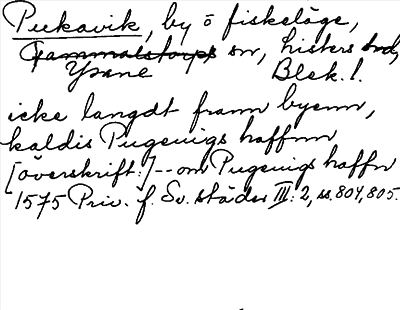 Pukavik, by o fiskeläge,
Gammalstorps sn, Listers hd,
Ysane Blek. l.
icke langdt frann byenn,
kaldis Pugeuigs haffnn
[överskrift:] -- om Pugeuigs haffn
1575 Priv. f. Sv. städer III: 2, ss. 804, 805.